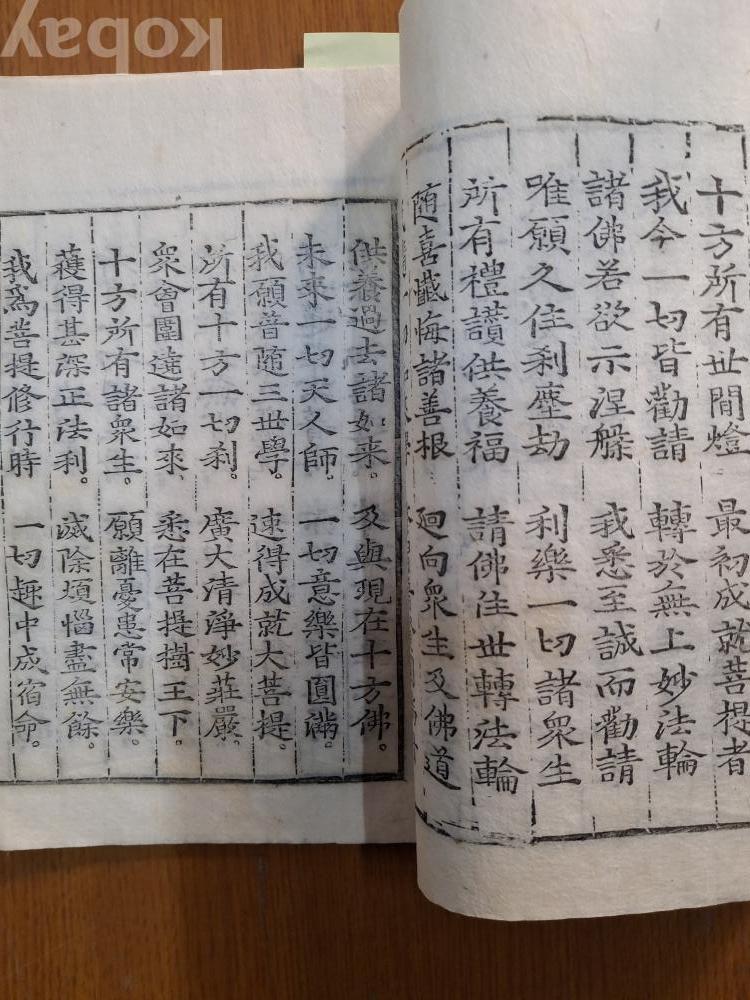 十方所有世間燈 最初成就菩提者
我今一切皆勸請 轉於無上妙法輪
諸佛若欲示涅槃 我悉至誠而勸請
唯願久住刹塵劫 利樂一切諸衆生
所有禮讃供養福 請佛住世轉法輪
随喜懺悔諸善根 廻向衆生及佛道
供養過去諸如来。 及與現在十方佛。
未来一切天人師。 一切意樂皆圓滿。
我願普随三世學。 速得成就大菩提。
所有十方一切刹。 廣大清淨妙莊嚴。
衆會圍遶諸如来、 悉在菩提樹王下。
十方所有諸衆生。 願離憂患常安樂。
獲得甚深正法利。 滅除煩惱盡無餘。
我爲菩提修行時 一切趣中成宿命。
kobay